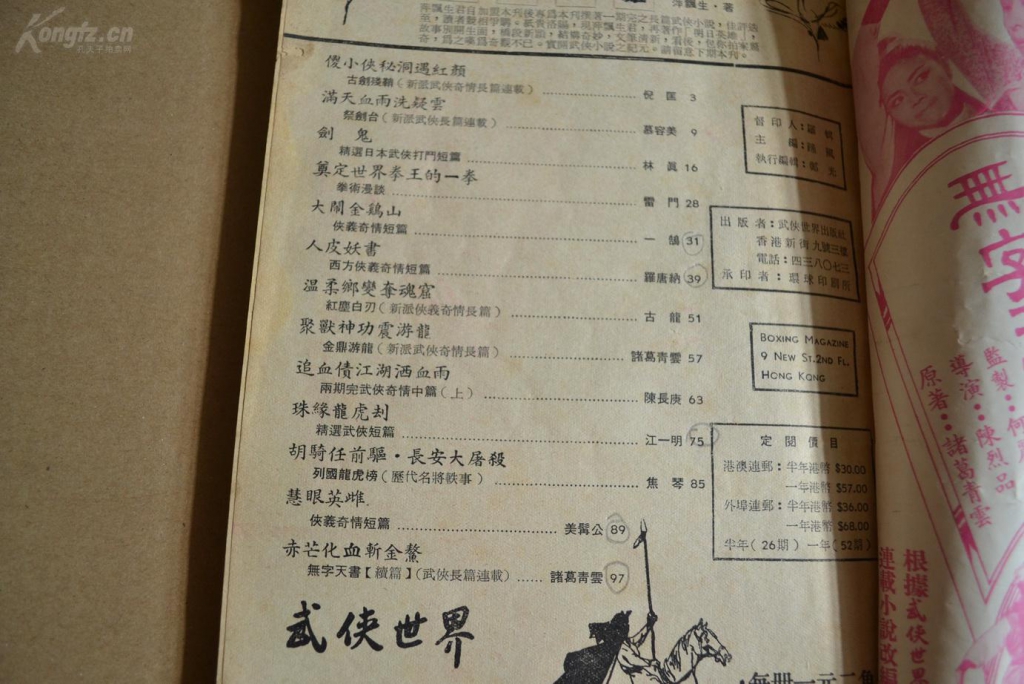 Kongfz.cn
孔夫子旧书网
萍飄生·著
傻小俠秘洞遇紅顏
古劍殘鞘(新派武俠奇情長篇連載) 倪匡 3
滿天血雨洗疑雲
祭劍台(新派武俠奇情長篇連載) 慕容美 9
劍鬼
精選日本武俠打鬥短篇 林眞 16
奠定世界拳王的一拳
拳術漫談 雷門 28
大鬧金鷄山
俠義奇情短篇 一鵠 31
人皮妖書
西方俠義奇情短篇 羅唐納 39
温柔鄉變奪魂窟
紅塵白刃(新派俠義奇情長篇) 古龍 51
聚獸神功震游龍
金鼎游龍(新派武俠奇情長篇) 諸葛青雲 57
追血債江湖洒血雨
兩期完武俠奇情中篇(上) 陳長庚 63
珠緣龍虎刦
精選武俠短篇 江一明 75
胡騎任前驅·長安大屠殺
列國龍虎榜(歷代名將軼事) 焦琴 85
慧眼英雌
俠義奇情短篇 美髯公 89
赤芒化血斬金鰲
無字天書【續篇】(武俠長篇連載) 諸葛青雲 97
武俠世界
督印人:羅
主編:
執行編輯:鄭
出版者:武俠世界出版社
香港新街九號三樓
電話:四三八〇七三
承印者:環球印刷所
BOXING MAGAZINE
9 NEW ST. 2ND FL.
HONG KONG
定閱價目
港澳連郵:半年港幣 $30.00
一年港幣 $57.00
外埠連郵:半年港幣 $36.00
一年港幣 $68.00
半年(26期)一年(52期)
·每冊一元二角
無字
監製:何
導演:陳烈品
原著:諸葛青雲
根據武俠世界
連載小說改編